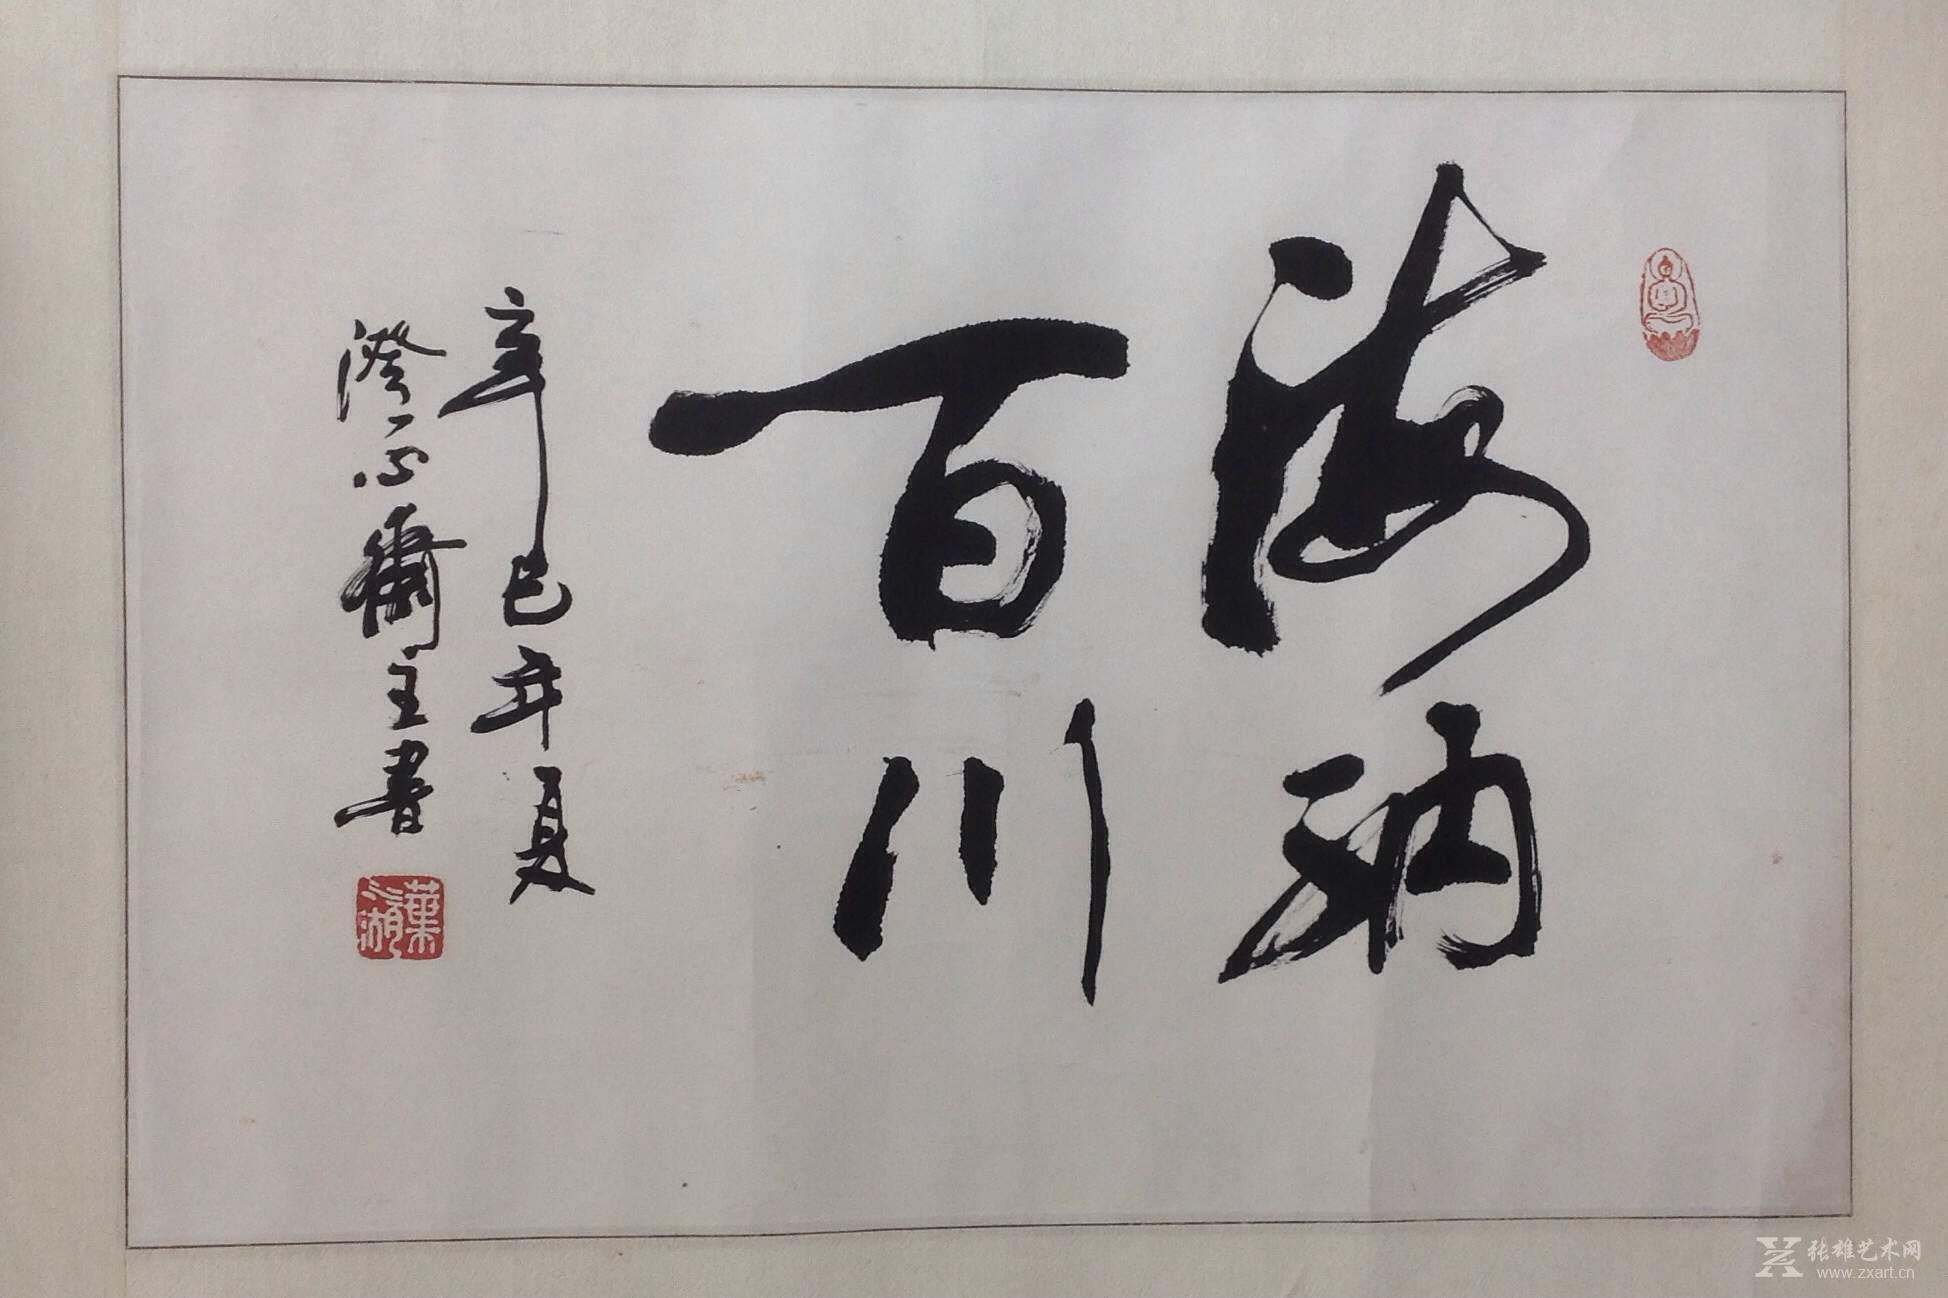 海纳
百川
辛巳年夏
澄心斋主书
张雄艺术网
www.zxart.cn